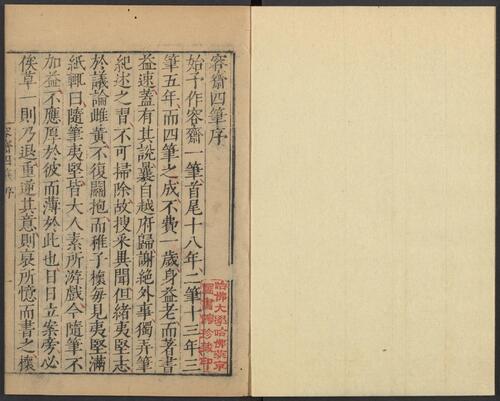 容齋四筆序
始予作容齋一筆首尾十八年二筆十三年三
筆五年而四筆之成不費一歲身益老而著書
益速蓋有其說曩自越府歸謝絕外事獨弄筆
紀述之習不可掃除故搜采異聞但緒夷堅志
於議論雌黃不復關抱而稚子櫰每見夷堅滿
紙輒曰隨筆夷堅皆大人素所游戲今隨筆不
加益不應厚於彼而薄於此也日日立案旁必
俟草一則乃退重逆其意則裒所憶而書之櫰
哈佛大學哈佛燕京
圖書館珍藏印